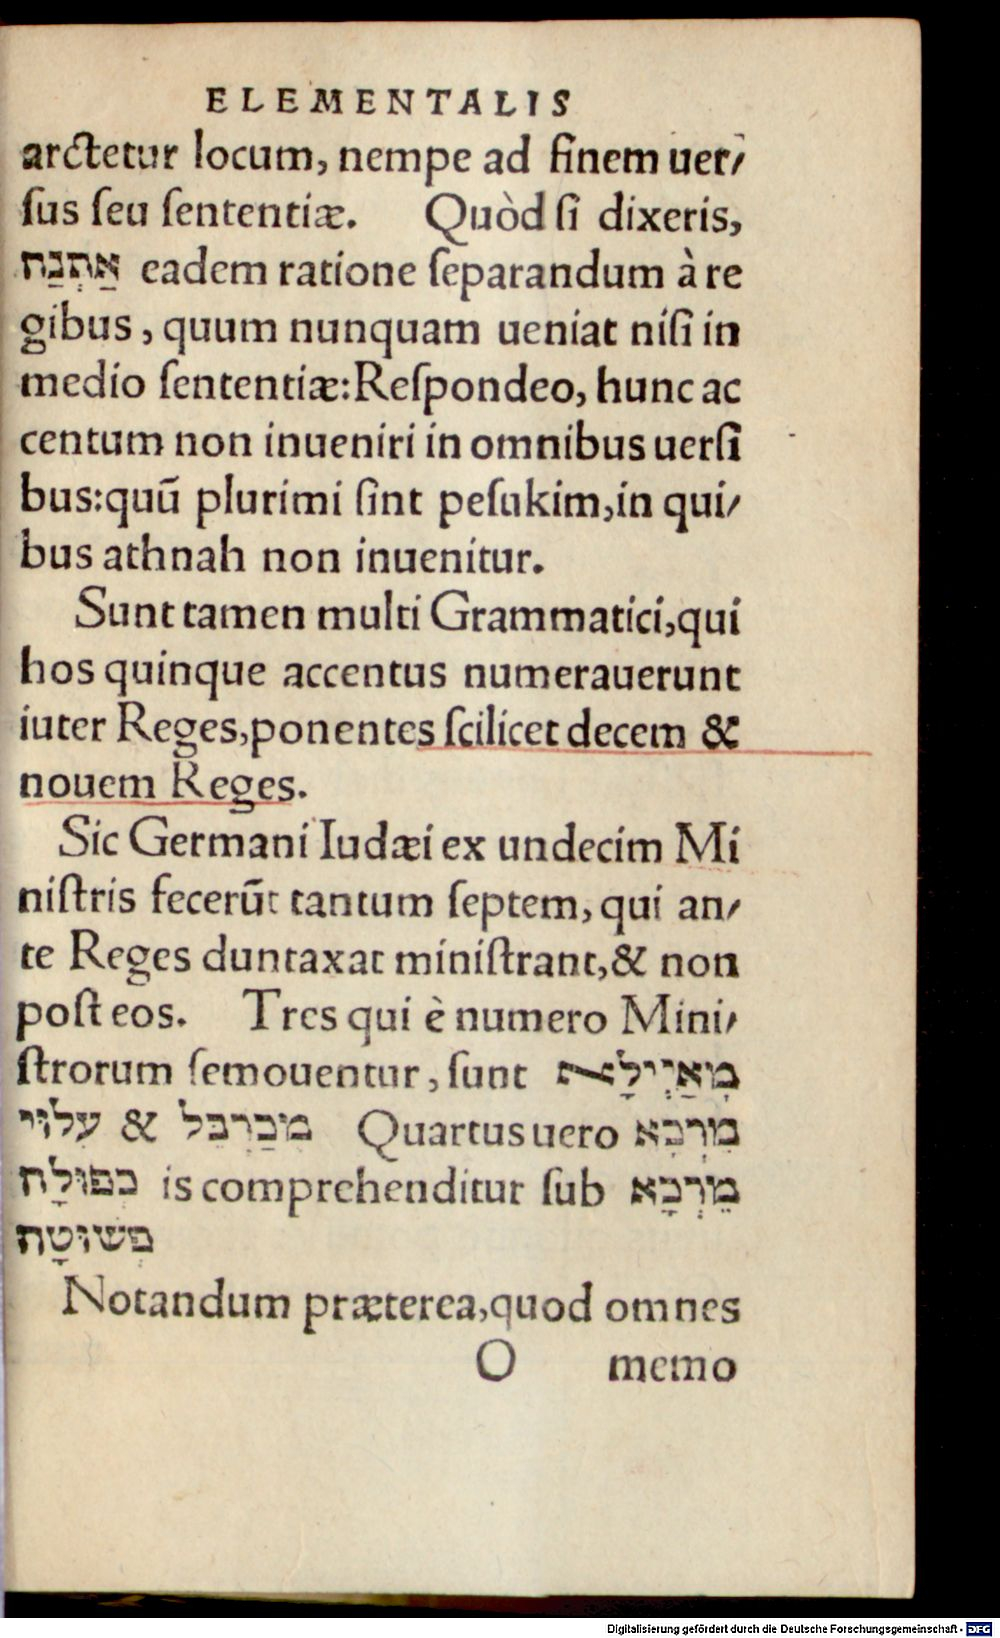 ELEMENTALIS
arctetur locum, nempe ad finem uer/
ſus ſeu ſententiæ. Quòd ſi dixeris,
אַתְנַח eadem ratione ſeparandum à re
gibus, quum nunquam ueniat niſi in
medio ſententiæ: Reſpondeo, hunc ac
centum non inueniri in omnibus uerſi
bus: quū plurimi ſint peſukim, in qui/
bus athnah non inuenitur.
Sunt tamen multi Grammatici, qui
hos quinque accentus numerauerunt
iuter Reges, ponentes ſcilicet decem &
nouem Reges.
Sic Germani Iudæi ex undecim Mi
niſtris fecerūt tantum ſeptem, qui an/
te Reges duntaxat miniſtrant, & non
poſt eos. Tres qui è numero Mini/
ſtrorum ſemouentur, ſunt מְאַיְילָא
עִלּוּי & מְכַרְבֵּל Quartus uero מֵרְכָא
כְפוּלָה is comprehenditur ſub מֵרְכָא
פְשׁוּטָה
Notandum præterea, quod omnes
O memo
Digitalisierung gefördert durch die Deutsche Forschungsgemeinschaft - DFG